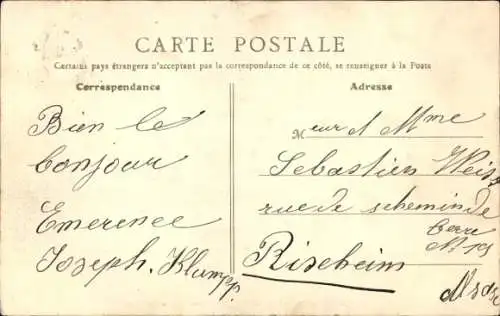 CARTE POSTALE
Certains pays étrangers n'acceptant pas la correspondance de ce côté, se renseigner à la Poste
Correspondance
Adresse
Bien le
bonjour
Emerence
Joseph. Klumpp.
Meur d Mme
Sebastien Weiss
rue de
Rixheim
Alsase